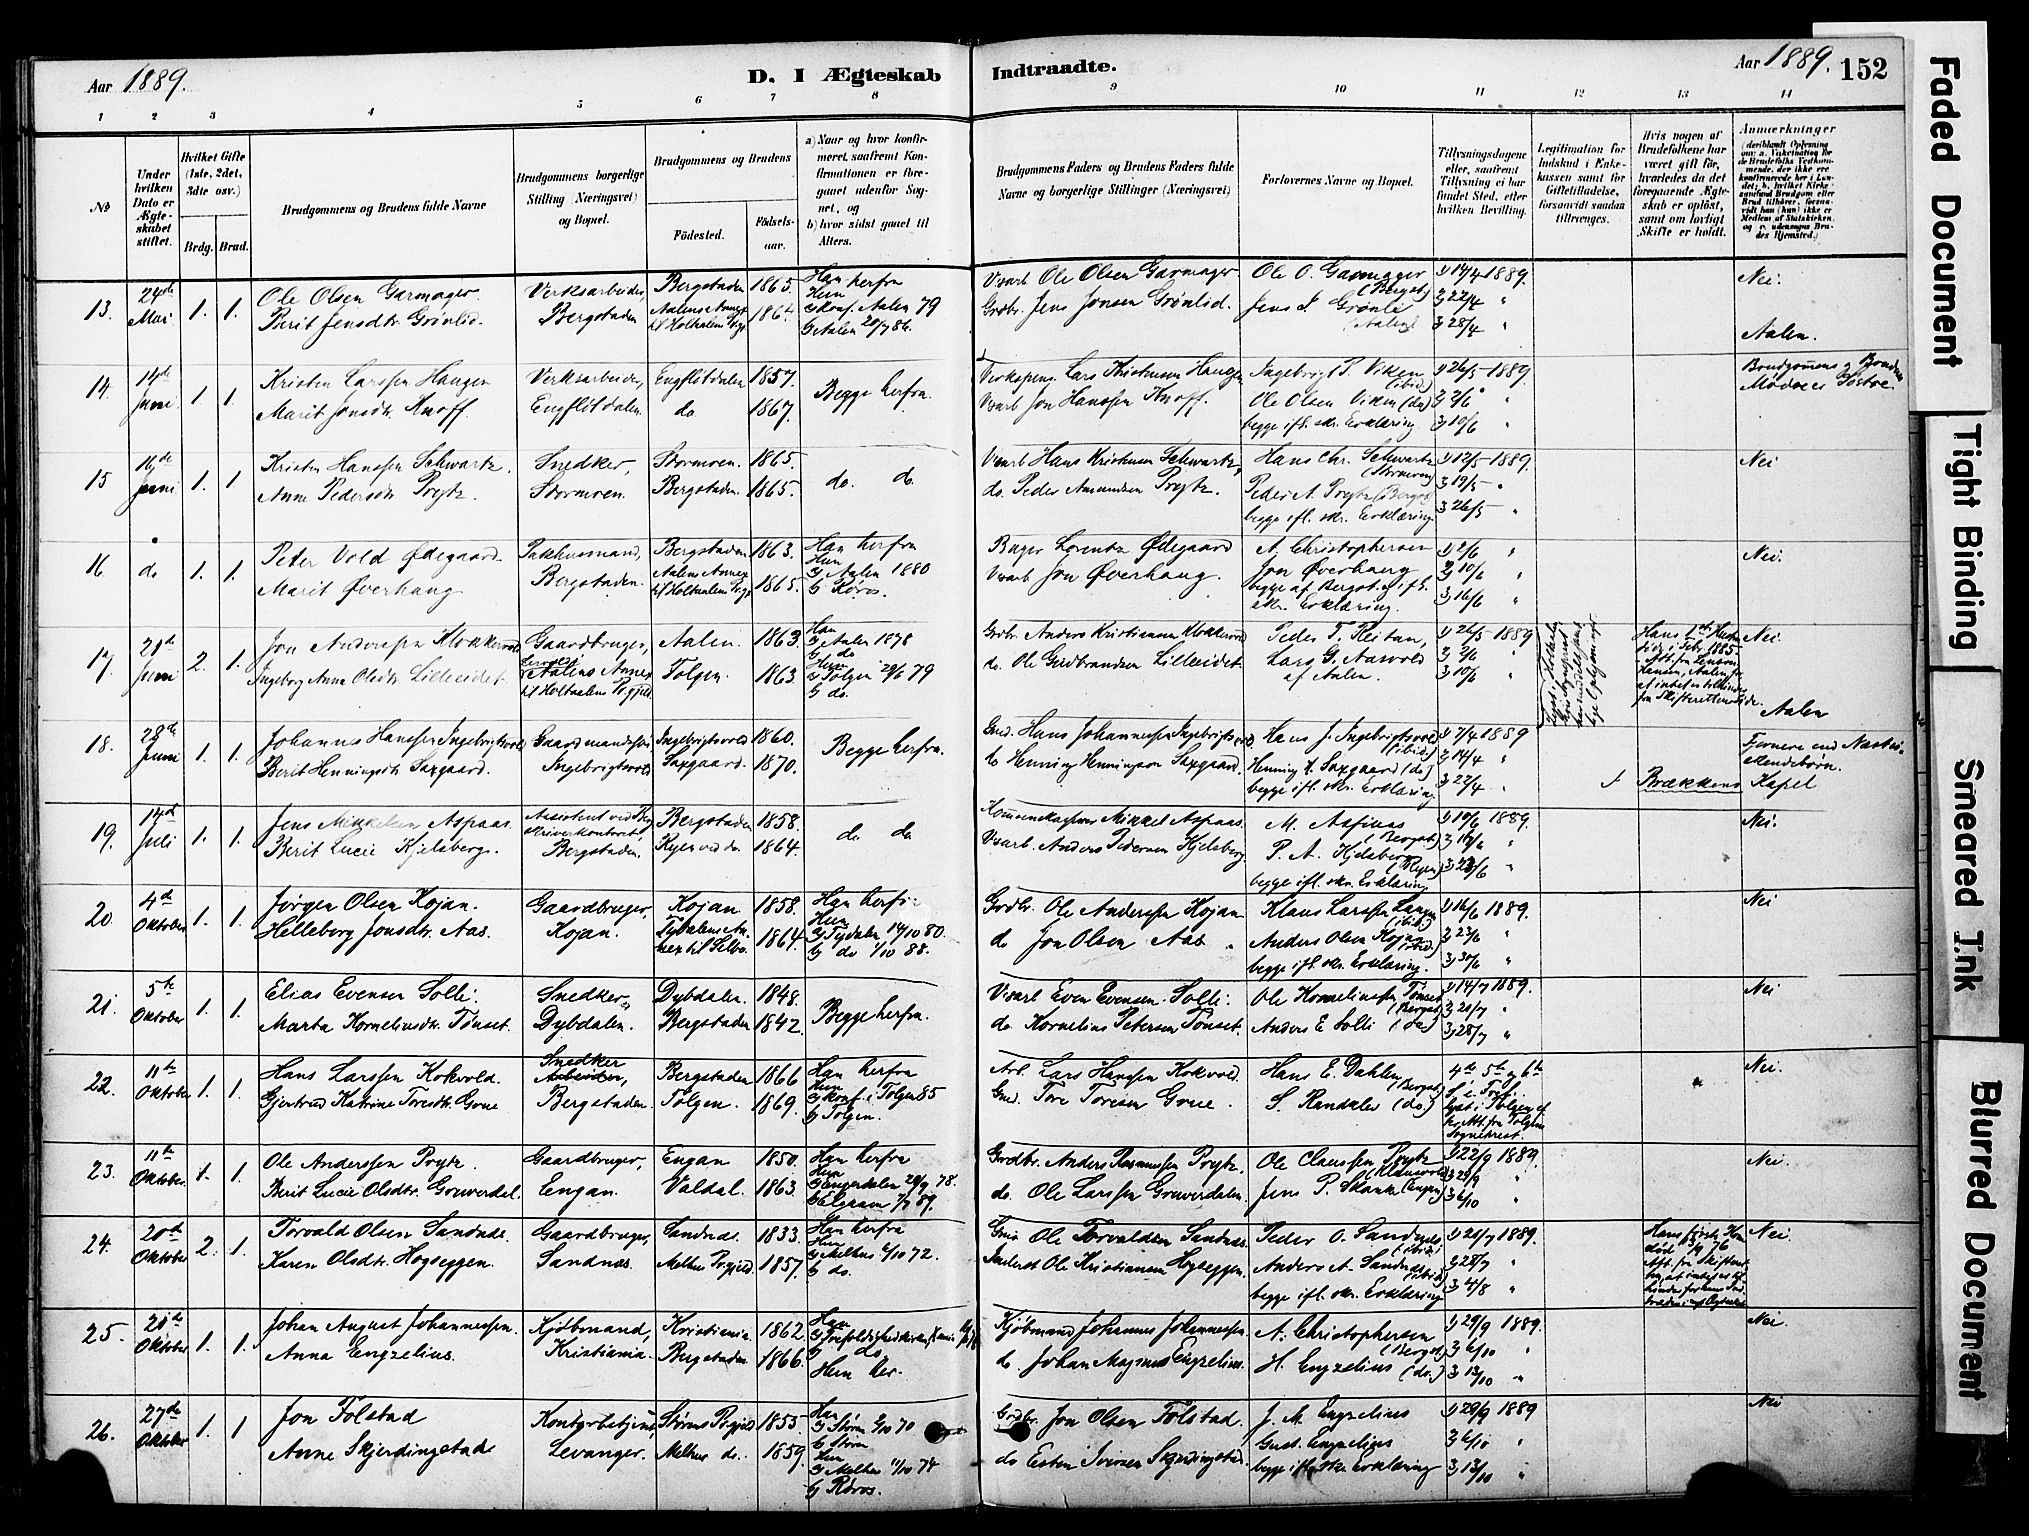 Aar 1889.
D. I Ægteskab Indtraadte.
Aar 1889. 152
1 2 3 4 5 6 7 8 9 10 11 12 13 14
No
Under hvilken Dato er Ægteskabet stiftet.
Hvilket Gifte (1ste, 2det, 3die osv.)
Brdg. Brud.
Brudgommens og Brudens fulde Navne
Brudgommens borgerlige Stilling (Næringsvei) og Bopæl.
Brudgommens og Brudens
Fødested. Fødselsaar.
a) Naar og hvor konfirmeret, saafremt Konfirmationen er foregaaet udenfor Sognet, og
b) hvor sidst gaaet til Alters.
Brudgommens Faders og Brudens Faders fulde Navne og borgerlige Stillinger (Næringsvei)
Forlovernes Navne og Bopæl.
Tillysningsdagene eller, saafremt Tillysning ei har fundet Sted, efter hvilken Bevilling.
Legitimation for Indskud i Enkekassen samt for Giftetilladelse, forsaavidt saadan tiltrænges.
Hvis nogen af Brudefolkene har været gift før, hvorledes da det foregaaende Ægteskab er opløst, samt om lovligt Skifte er holdt.
Anmærkninger
13. 24de Mai 1. 1.
Ole Olsen Garmager. Verksarbeider, Bergstaden 1865. Han herfra
Berit Jensdtr. Grønlid. Bergstaden Aalens Annex til Holtaalens Prgj. 1864 Hun a) konf. Aalen 79 b) Aalen 20/7 86.
V.arb. Ole Olsen Garmager. Ole O. Garmager (Bergst.) 1) 14/4 1889. Nei.
Grdbr. Jens Jonsen Grønlid. Jens J. Grønli (Aalen) 2) 22/4 " 3) 28/4 " Aalen.
14. 14de Juni 1. 1.
Kristen Larssen Haugen Verksarbeider, Engflötdalen 1857. Begge herfra.
Marit Jonsdtr. Knoff. Engflötdalen. do. 1867.
Lars Kristensen Haugen Ingebrigt P. Viken (ibid.) 1) 26/5 1889.
V.arb. Jon Hanssen Knoff. Ole Olsen Viken (do) 2) 2/6 "
begge ifl. skr. Erklæring. 3) 10/6 "
Brudgommens og Brudens Mødre er Søstre.
15 16de Juni 1. 1
Kristen Hanssen Schwartz. Snedker, Stormoen. 1865. do. do.
Anne Pedersdtr. Prytz. Stormoen. Bergstaden. 1865.
V.arb. Hans Kristensen Schwartz, Hans Chr. Schwartz (Stormoen) 1) 12/5 1889. Nei
do. Peder Amundsen Prytz. Peder A. Prytz (Bergst.) 2) 19/5 "
begge ifl. skr. Erklæring. 3) 26/5 "
16. do 1. 1.
Peter Vold Ødegaard Pakhusmand, Bergstaden 1863. Han herfra
Marit Øverhaug Bergstaden. Aalens Annex til Holtaalens Prgj. 1865. Hun a) Aalen 1880 b) Røros.
Bager Lorentz Ødegaard A. Christophersen 1) 2/6 " Nei.
V.arb. Jon Øverhaug. Jon Øverhaug 2) 10/6 "
begge af Bergst. og ifl. skr. Erklæring. 3) 16/6 "
17. 21de Juni 2. 1.
Jon Anderssen Klokkervold Gaardbruger, Aalen. 1863. Han a) Aalen 1878 b) do
Ingeborg Anna Olsdtr. Lilleeidet. Aalens Annex til Holtaalens Prgjeld Tolgen. 1863. Hun a) Tolgen 29/6 79 b) do.
Grdbr. Anders Kristiansen Klokkervold Peder T. Reitan, 1) 26/5 1889 Nei
do. Ole Gudbrandsen Lilleeidet Lars G. Aasvold af Aalen. 2) 2/6 " 3) 10/6 "
Hans 1ste Hustru døde i Febr. 1885
Aalen
18. 28de Juni 1. 1.
Johannes Hanssen Ingebrigtsvold Gaardmandssøn, Ingebrigtsvold 1860. Begge herfra.
Berit Henningsdtr. Saxgaard. Ingebrigtsvold Saxgaard. 1870.
Gmd. Hans Johannessen Ingebrigtsvold. Hans J. Ingebrigtsvold (ibid.) 1) 7/4 1889
do Henning Henningsen Saxgaard. Henning H. Saxgaard (do) 2) 14/4 "
begge ifl. skr. Erklæring. 3) 22/4 "
Fjernere end Næstsøskendebørn.
Brækkens Kapel
19. 14de Juli 1. 1.
Jens Mikkelsen Aspaas. Assistent ved Bergskriverkontoret, Bergstaden 1858. do do
Berit Lucie Kjelsberg. Bergstaden. Ryen ved do. 1864.
Mikkel Aspaas. M. Aspaas (Bergst.) 1) 10/6 1889. Nei.
V.arb. Anders Pedersen Kjelsberg. P. A. Kjelsberg (Ryen) 2) 16/6 "
begge ifl. skr. Erklæring 3) 23/6 "
20 4de Oktober 1. 1.
Jørgen Olsen Kojan. Gaardbruger, Kojan 1858. Han herfra
Helleborg Jonsdtr. Aas. Kojan. Tydalens Annex til Selbo. 1864. Hun a) Tydalen 14/10 80. b) do 1/10 88.
Grdbr. Ole Anderssen Kojan Klaus Larssen Langen (ibid) 1) 16/6 1889. Nei
do Jon Olsen Aas. Anders Olsen Kojan (ibid.) 2) 23/6 "
begge ifl. skr. Erklæring. 3) 30/6 "
21. 5te Oktober 1. 1.
Elias Evensen Solli. Snedker, Dybdalen. 1848. Begge herfra.
Marta Korneliusdtr. Tønset. Dybdalen. Bergstaden 1842.
V.arb. Even Evensen Solli. Ole Korneliussen Tønset (Bergst.) 1) 14/7 1889. Nei
do. Kornelius Petersen Tønset. Anders E. Solli (do) 2) 21/7 " 3) 28/7 "
22. 11te Oktober 1. 1.
Hans Larssen Kokvold. Snedker Arbeider, Bergstaden 1866 Han herfra
Gjertrud Katrine Toresdtr. Grue Bergstaden. Tolgen. 1869. Hun a) konf. i Tolgen 85 b) Tolgen.
Arb. Lars Hanssen Kokvold. Hans E. Dahlen (Bergst.) 4de 5te og 6te S. e. Tref. Nei.
Gmd. Tore Toresen Grue. S. Randalen (do.) lyst i Tolgen
23. 11te Oktober. 1. 1.
Ole Anderssen Prytz. Gaardbruger, Engan 1850. Han herfra
Berit Lucie Olsdtr. Gruverdal. Engan. Valdal. 1863. Hun a) Engerdalen 29/9 78. b) Elgaaen 7/7 89.
Grdbr. Anders Rasmussen Prytz. Ole Claussen Prytz 1) 22/9 1889. Nei.
do. Ole Larssen Gruverdalen. Jens P. Skanke (Engen) 2) 29/9 " 3) 6/10 "
24. 20de Oktober 2. 1.
Torvald Olsen Sandnes. Gaardbruger, Sandnes. 1833. Han herfra
Karen Olsdtr. Hogseggen. Sandnæs. Melhus Prgjeld 1857. Hun a) Melhus 6/10 72. b) do.
Gmd. Ole Torvaldsen Sandnæs. Peder O. Sandnæs (ibid) 1) 21/7 1889. Nei.
Ole Kristiansen Hogseggen. Anders A. Sandnæs (ibid) 2) 28/7 "
begge ifl. skr. Erklæring. 3) 4/8 "
Hans første Kone død 13/9 76
25. 21de Oktober 1. 1.
Johan August Johannessen. Kjøbmand, Kristiania. 1862. Han
Anna Engzelius. Kristiania. Bergstaden 1866. b) do. Hun her.
Kjøbmand Johannes Johannessen. A. Christophersen (Bergst.) 1) 29/9 1889. Nei.
do. Johan Magnus Engzelius. H. Engzelius (do.) 2) 6/10 " 3) 13/10 "
26. 27de Oktober 1. 1
Jon Folstad Kontorbetjent, Størens Prgjeld 1855. Han a) Støren 9/10 70 b) Støren
Anne Skjerdingstad Levanger. Melhus do. 1859. Hun a) Melhus 11/10 74 b) Røros.
Grdbr. Jon Olsen Folstad. J. M. Engzelius 1) 29/9 1889 Nei
do Esten Iversen Skjerdingstad. Gust. Engzelius 2) 6/10 "
begge ifl. skr. Erklæring 3) 13/10 "
Faded Document
Tight Binding
Smeared Ink
Blurred Document